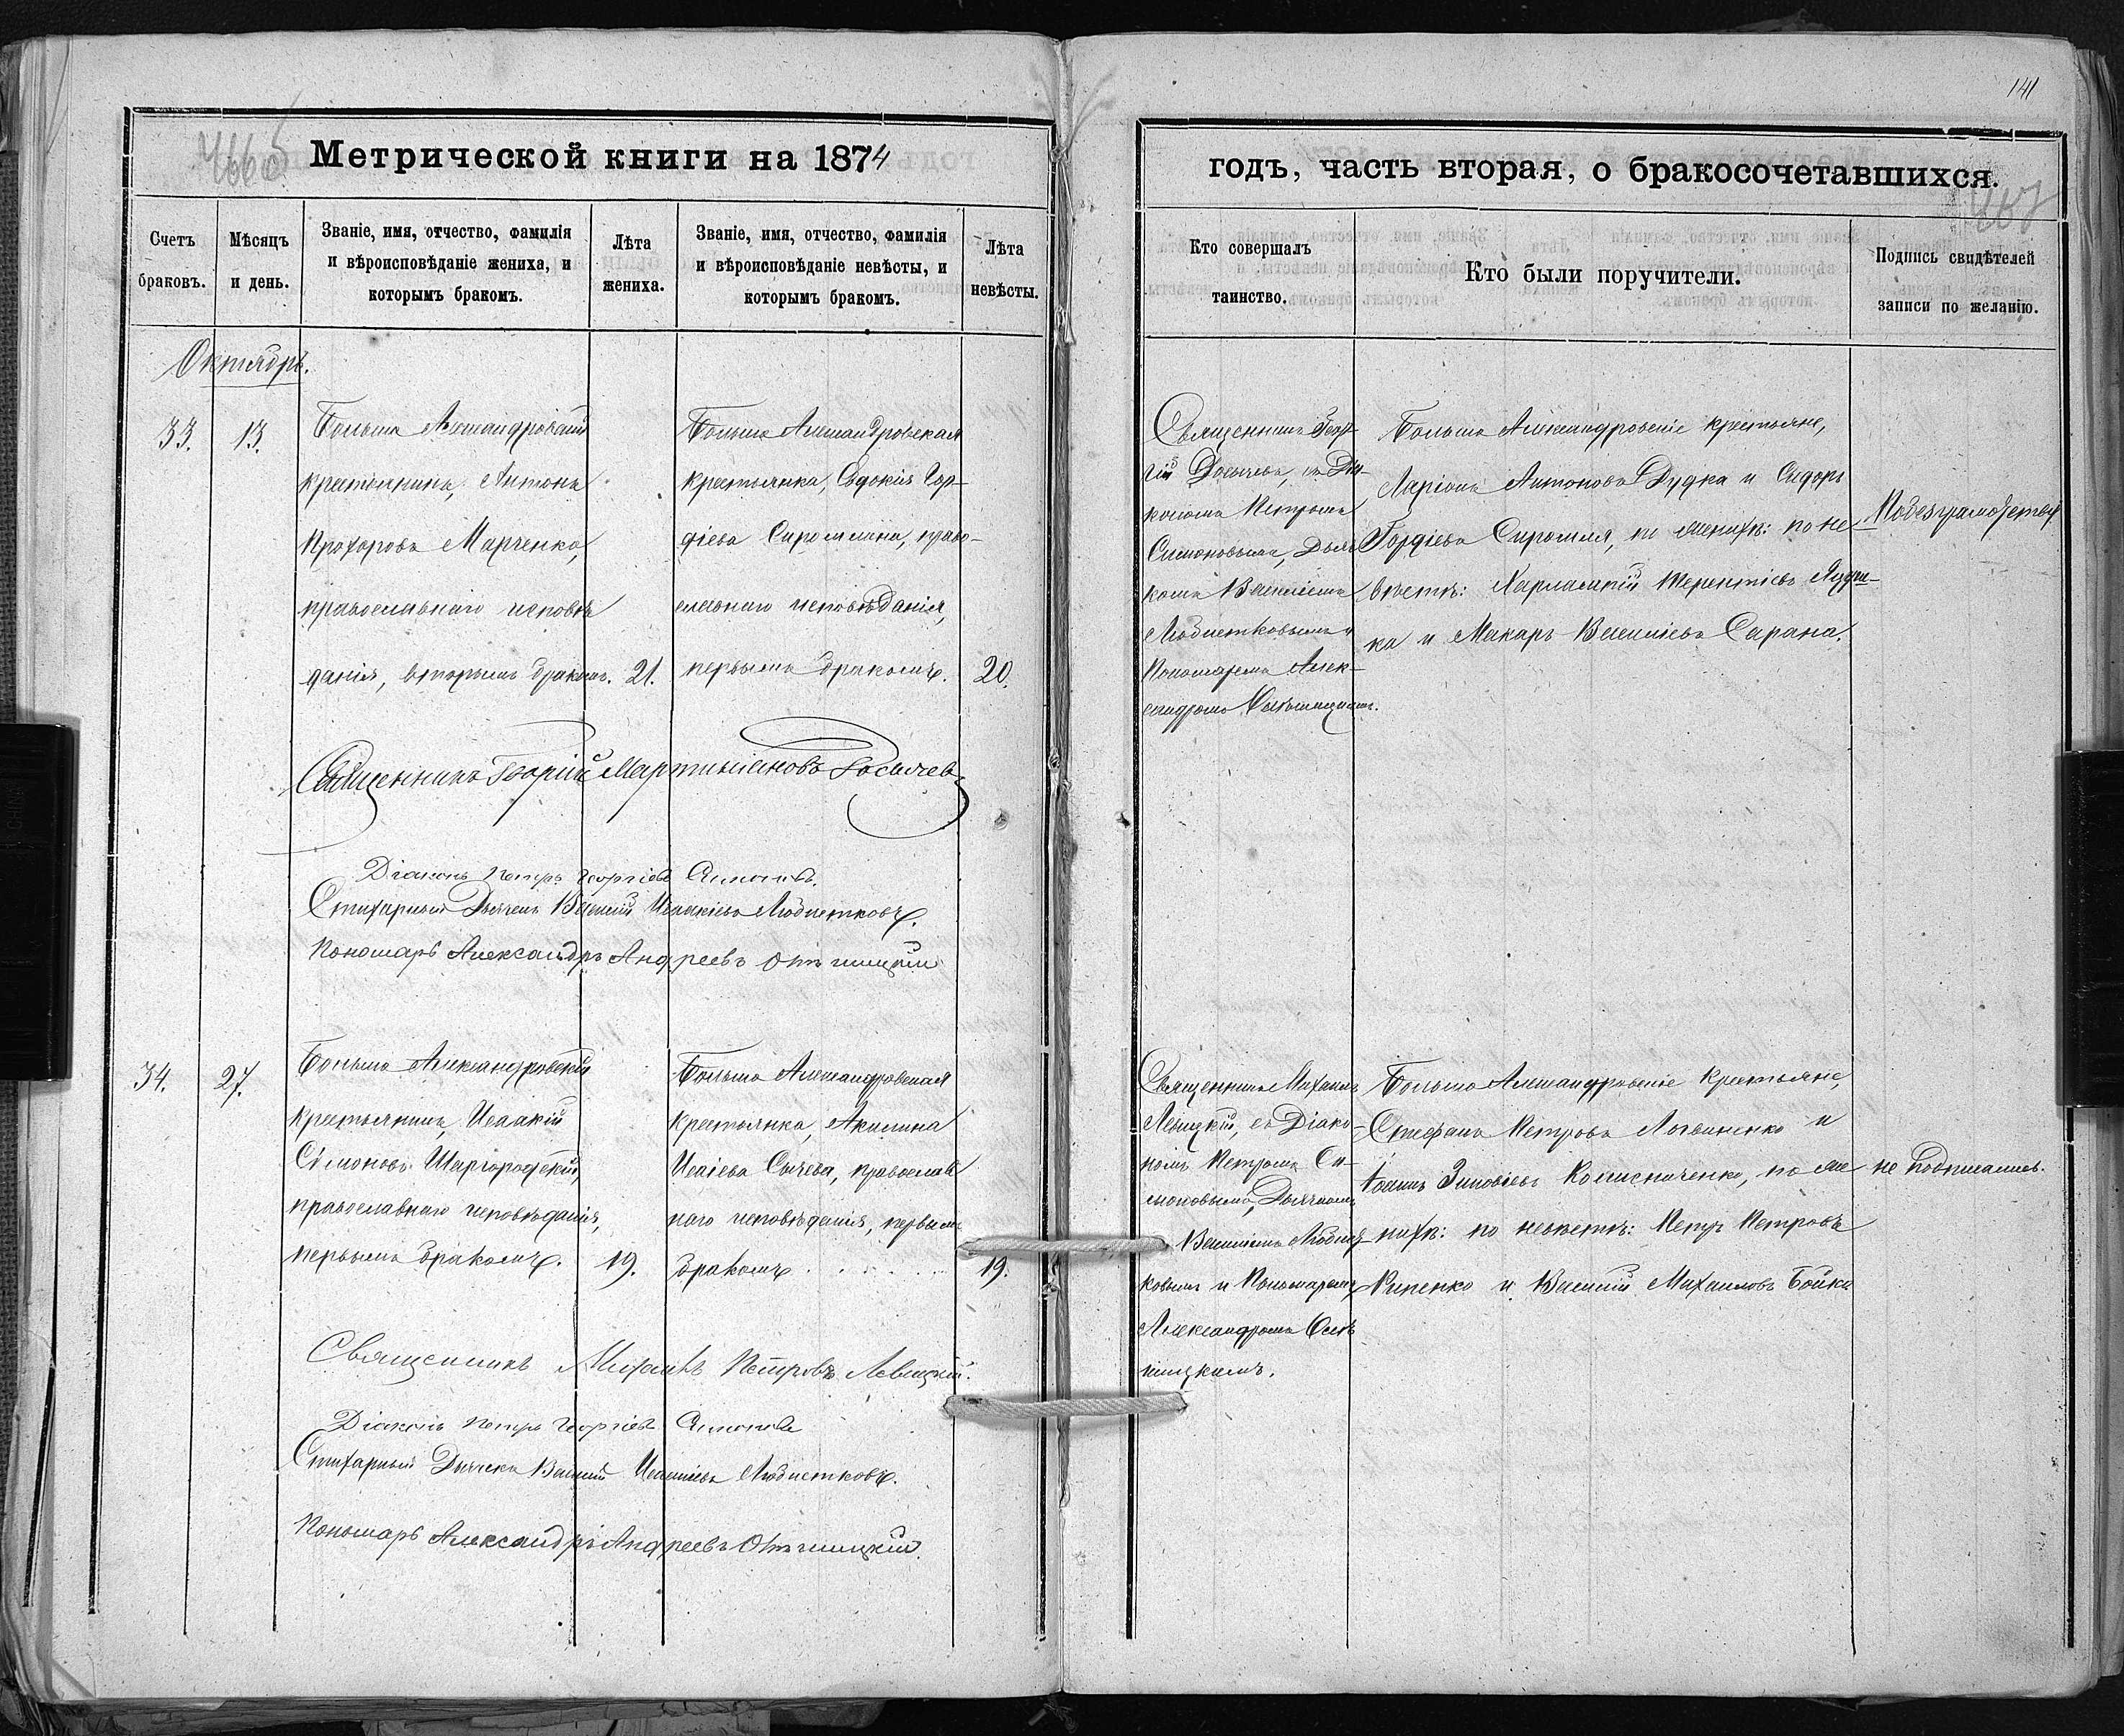 141
466 об
Метрической книги на 1874
годъ, часть вторая, о бракосочетавшихся.
467
Счетъ браковъ.
Мѣсяцъ и день.
Званіе, имя, отчество, фамилія
и вѣроисповѣданіе жениха, и
которымъ бракомъ.
Лѣта жениха.
Званіе, имя, отчество, фамилія
и вѣроисповѣданіе невѣсты, и
которымъ бракомъ.
Лѣта невѣсты.
Кто совершалъ
таинство.
Кто были поручители.
Подпись свидѣтелей
записи по желанію.
Октябрь.
33.
13.
Больше Александровскій
крестьянинъ, Антонъ
Прохоровъ Марченко,
православнаго исповѣ
данія, вторымъ бракомъ.
21.
Больше Александровская
крестьянка, Евдокія Гор-
діева Сиромлина, право-
славнаго исповѣданія,
первымъ бракомъ.
20.
Священникъ Геор-
гій, съ Діа-
кономъ Петромъ
Симоновымъ, Дьяч
комъ Василіемъ
Любистковымъ и
Пономаремъ Алек-
сандромъ
Больше Александровскіе крестьяне,
Ларіонъ Антоновъ Дудка и Сидоръ
Гордіевъ, по женихѣ: по не
вѣстѣ: Харлампій Терентіевъ
ка и Макаръ Василіевъ Сарана.
Священникъ Георгій Мартиніановъ
Діаконъ Петръ Георгіевъ Симоновъ.
Стихарный Дьячекъ Василій Исаакіевъ Любистковъ.
Пономарь Александръ Андреевъ
34.
27.
Больше Александровскій
крестьянинъ, Исаакій
Симоновъ Шаргородскій,
православнаго исповѣданія,
первымъ бракомъ.
19.
Больше Александровская
крестьянка, Акилина
Исаіева Сычева, православ
наго исповѣданія, первымъ
бракомъ
19.
Священникъ Михаилъ
Левицкій, съ Діако-
номъ Петромъ Си-
моновымъ, Дьячкомъ
Василіемъ Любист
ковымъ и Пономаремъ
Александромъ
Больше Александровскіе крестьяне,
Стефанъ Петровъ Логвиненко и
Іоаннъ Зиновіевъ Колисниченко, по же
нихѣ: по невѣстѣ: Петръ Петровъ
Рипенко и Василій Михаиловъ Бойко
не подписались.
Священникъ Михаилъ Петровъ Левицкій.
Діаконъ Петръ Георгіевъ Симоновъ
Стихарный Дьячекъ Василій Исаакіевъ Любистковъ.
Пономарь Александръ Андреевъ